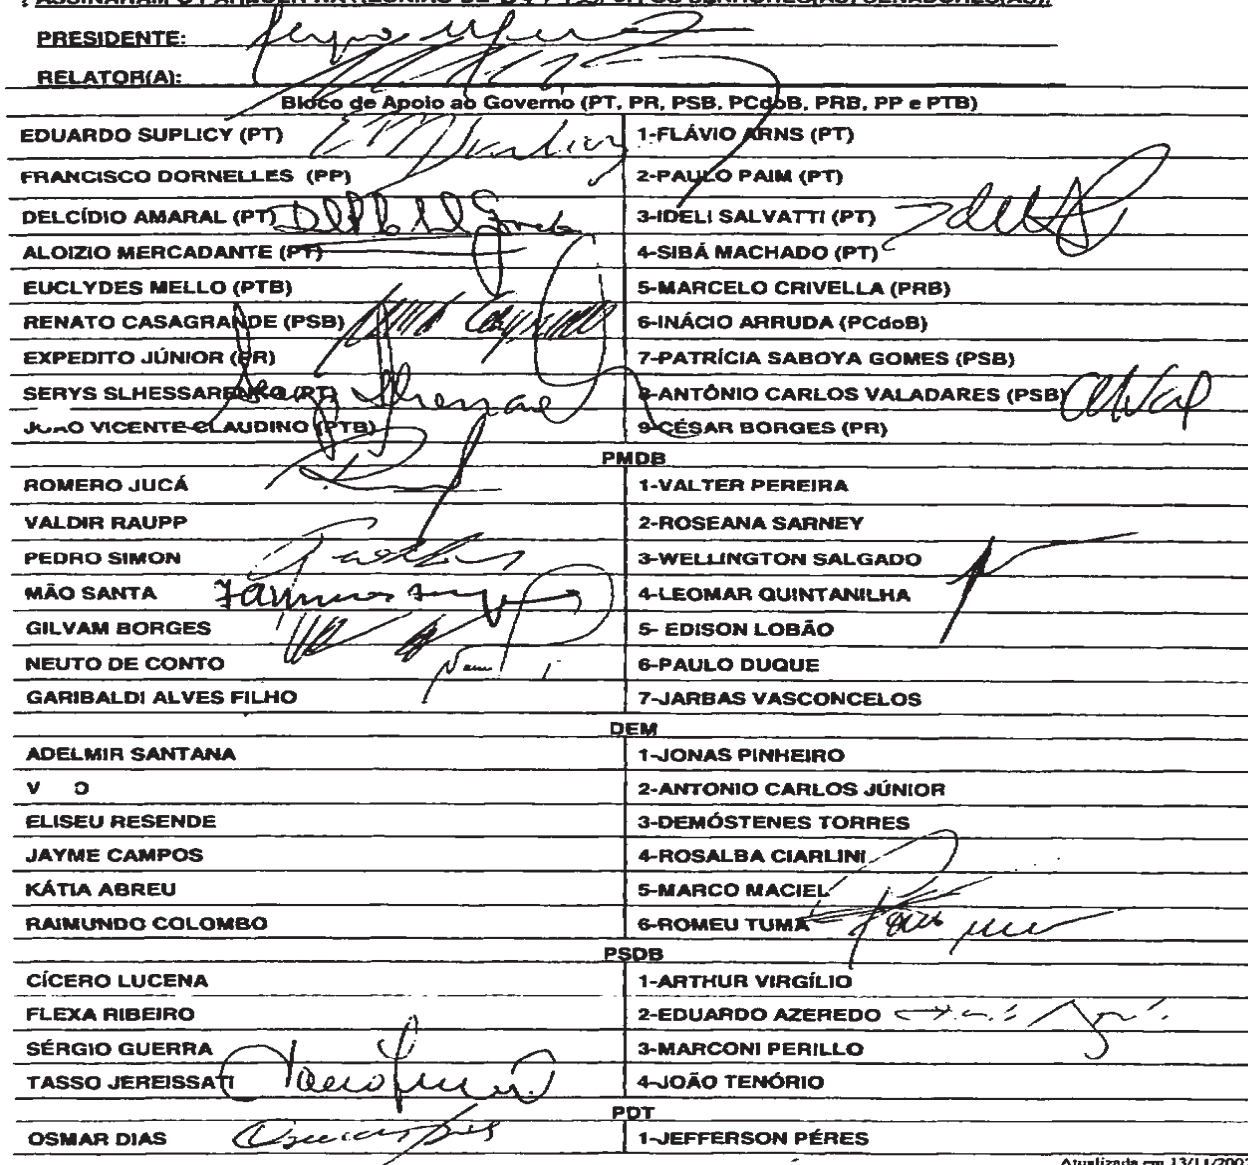 ASSINARAM O PARECER NA REUNIÃO DE OS SENHORES(AS) SENADORES(AS):
PRESIDENTE:
RELATOR(A):
Bloco de Apoio ao Governo (PT, PR, PSB, PCdoB, PRB, PP e PTB)
EDUARDO SUPLICY (PT) 1-FLÁVIO ARNS (PT)
FRANCISCO DORNELLES (PP) 2-PAULO PAIM (PT)
DELCÍDIO AMARAL (PT) 3-IDELI SALVATTI (PT)
ALOIZIO MERCADANTE (PT) 4-SIBÁ MACHADO (PT)
EUCLYDES MELLO (PTB) 5-MARCELO CRIVELLA (PRB)
RENATO CASAGRANDE (PSB) 6-INÁCIO ARRUDA (PCdoB)
EXPEDITO JÚNIOR (PR) 7-PATRÍCIA SABOYA GOMES (PSB)
SERYS SLHESSARENKO (PT) 8-ANTÔNIO CARLOS VALADARES (PSB)
JOÃO VICENTE CLAUDINO (PTB) 9-CÉSAR BORGES (PR)
PMDB
ROMERO JUCÁ 1-VALTER PEREIRA
VALDIR RAUPP 2-ROSEANA SARNEY
PEDRO SIMON 3-WELLINGTON SALGADO
MÃO SANTA 4-LEOMAR QUINTANILHA
GILVAM BORGES 5- EDISON LOBÃO
NEUTO DE CONTO 6-PAULO DUQUE
GARIBALDI ALVES FILHO 7-JARBAS VASCONCELOS
DEM
ADELMIR SANTANA 1-JONAS PINHEIRO
V O 2-ANTONIO CARLOS JÚNIOR
ELISEU RESENDE 3-DEMÓSTENES TORRES
JAYME CAMPOS 4-ROSALBA CIARLINI
KÁTIA ABREU 5-MARCO MACIEL
RAIMUNDO COLOMBO 6-ROMEU TUMA
PSDB
CÍCERO LUCENA 1-ARTHUR VIRGÍLIO
FLEXA RIBEIRO 2-EDUARDO AZEREDO
SÉRGIO GUERRA 3-MARCONI PERILLO
TASSO JEREISSATI 4-JOÃO TENÓRIO
PDT
OSMAR DIAS 1-JEFFERSON PÉRES
Atualizada em 13/11/2007